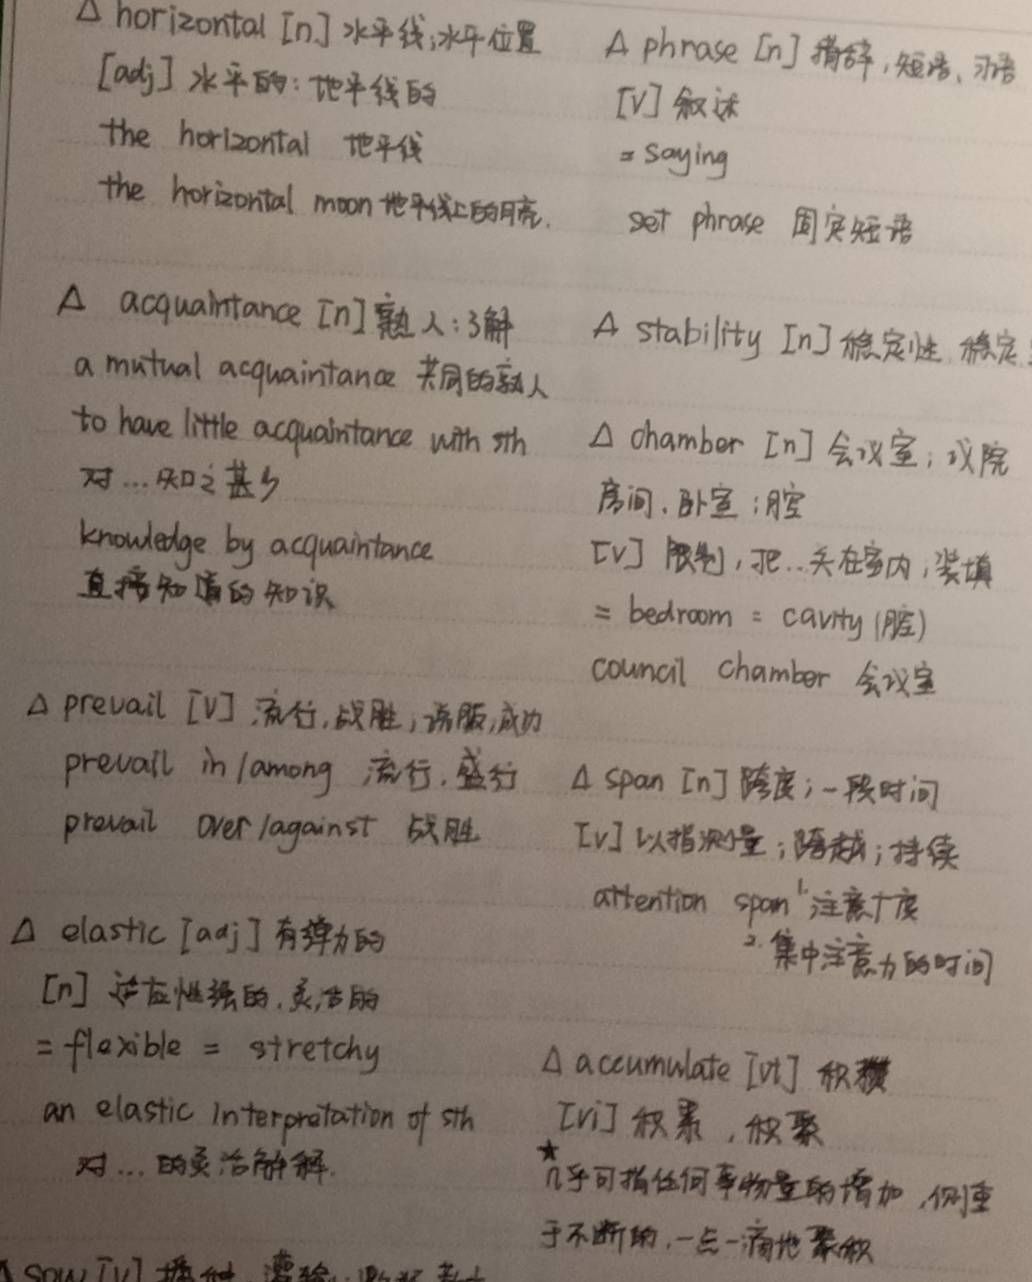 △ horizontal [n] 水平线;水平位置
[adj] 水平的:地平线的
the horizontal 地平线
the horizontal moon 地平线上的月亮.
△ acquaintance [n] 熟人:了解
a mutual acquaintance 共同的熟人
to have little acquaintance with sth
对...知之甚少
knowledge by acquaintance
直接知道的知识
△ prevail [v] 流行,战胜;说服,成功
prevail in/among 流行,盛行
prevail over/against 战胜
△ elastic [adj] 有弹力的
[n] 适应性强的,灵活的
= flexible = stretchy
an elastic interpretation of sth
对...的灵活解释.
△ sow [v] 播种
△ phrase [n] 措辞,短语、习语
[v] 叙述
= saying
set phrase 固定短语
△ stability [n] 稳定性 稳定
△ chamber [n] 会议室;议院
房间、卧室;腔
[v] 限制,把...关在室内;装填
= bedroom = cavity (腔)
council chamber 会议室
△ span [n] 跨度;一段时间
[v] 以指测量;跨越;持续
attention span 1. 注意广度
2. 集中注意力的时间
△ accumulate [vt] 积攒
[vi] 积累,积聚
★几乎可指任何事物量的增加,侧重
于不断的,一点一滴地聚积